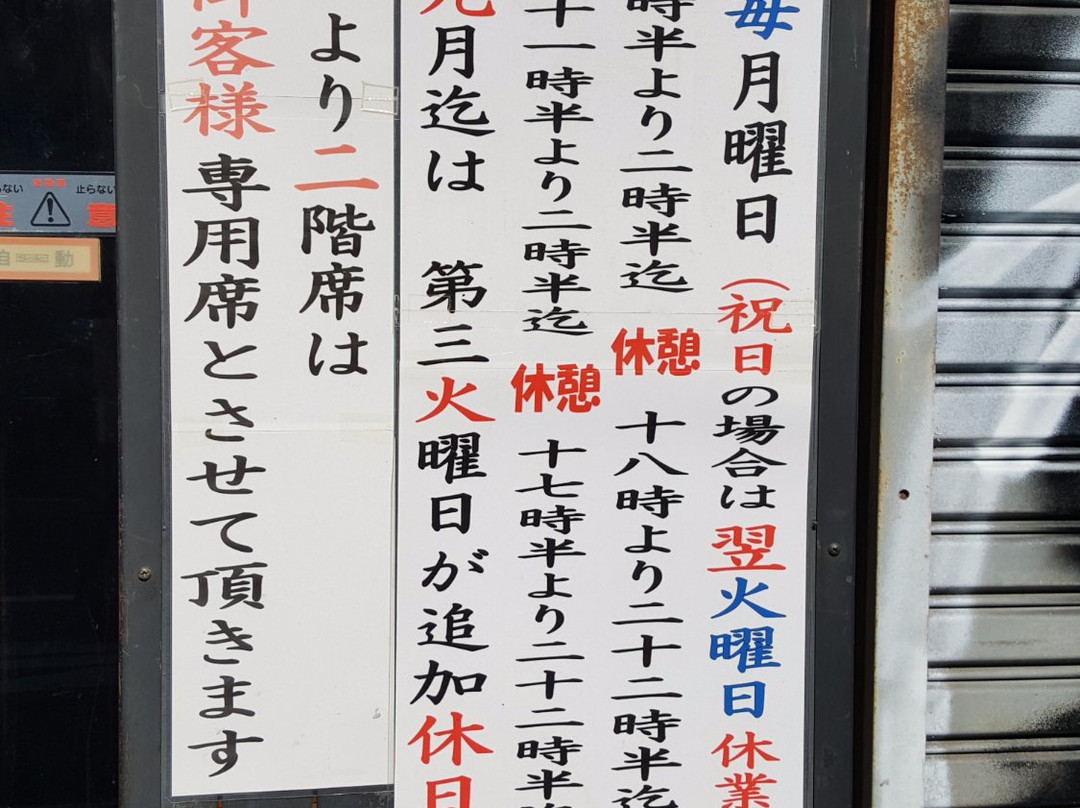 毎月曜日（祝日の場合は翌火曜日休業
時半より二時半迄 休憩 十八時より二十二時半迄
十一時半より二時半迄 休憩 十七時半より二十二時半迄
月迄は 第三火曜日が追加休日
より二階席は
御客様専用席とさせて頂きます
らない 止らない
注 意
自 動